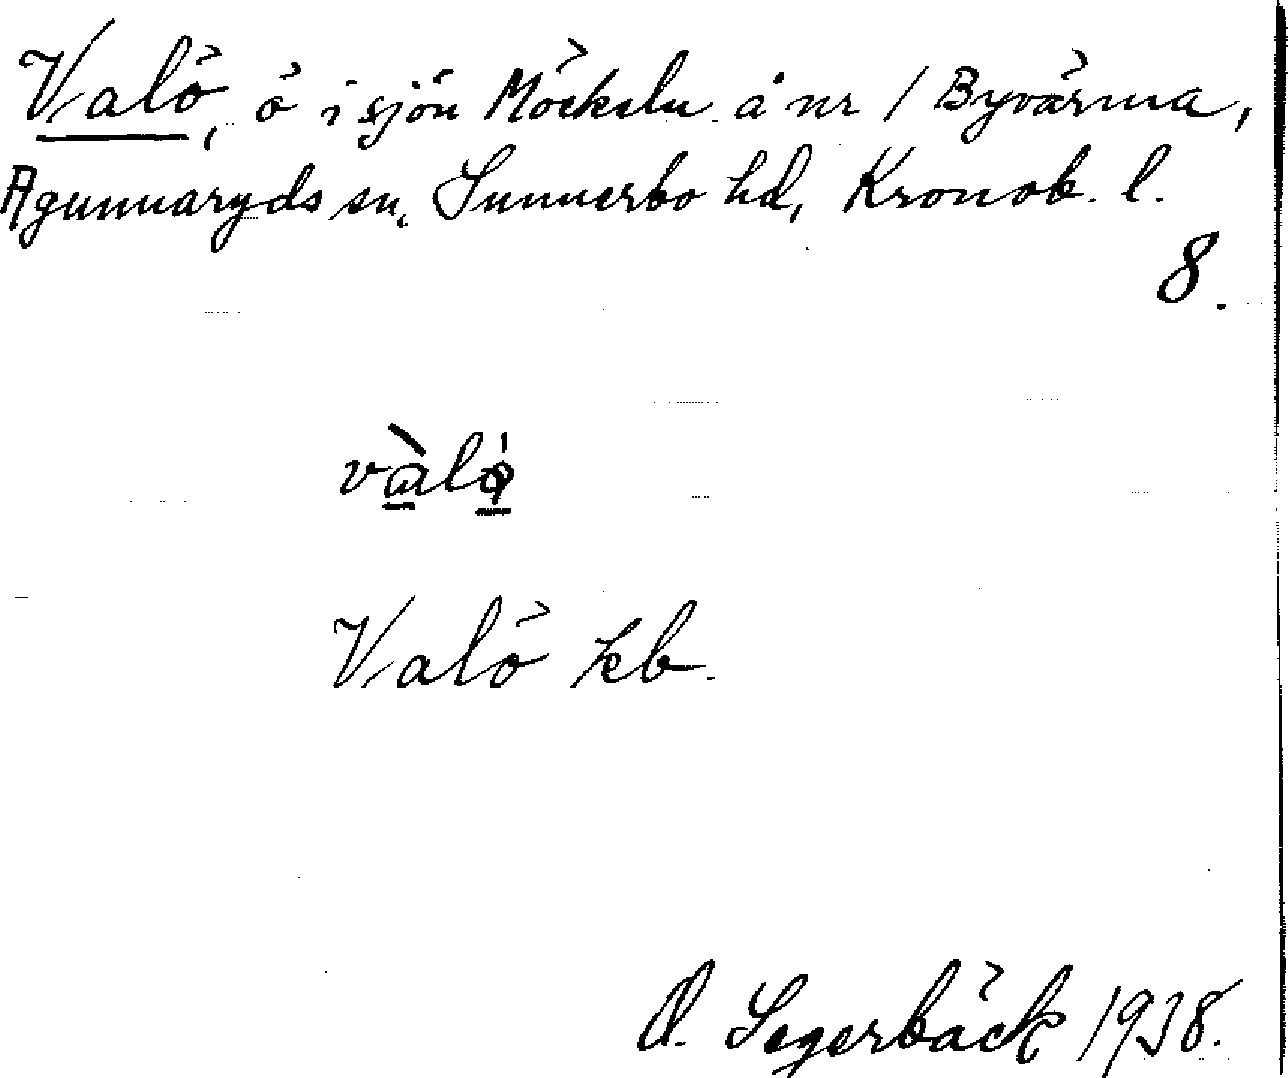 Valö, ö i sjön Möckeln å nr 1 Byvärma,
Agunnaryds sn, Sunnerbo hd, Kronob. l.
8.
Valö kb.
Segerbäck 1938.